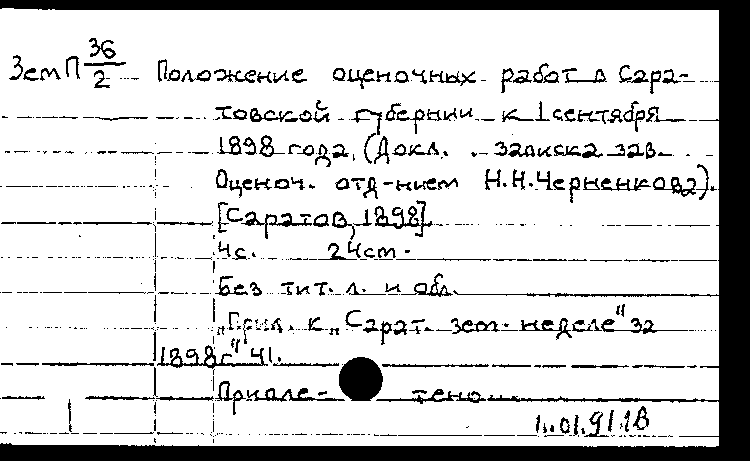 ЗемП 36/2 Положение оценочных работ в Сара-
товской губернии к 1 сентября
1898 года. (Докл. . записка зав.
Оценоч. отд-нием Н.Н.Черненкова).
[Саратов, 1898].
4с. 24см.
Без тит. л. и обл.
„Прил. к „Сарат. зем. неделе" за
1898г" 41.
Припле- тено
1.01.91.1В